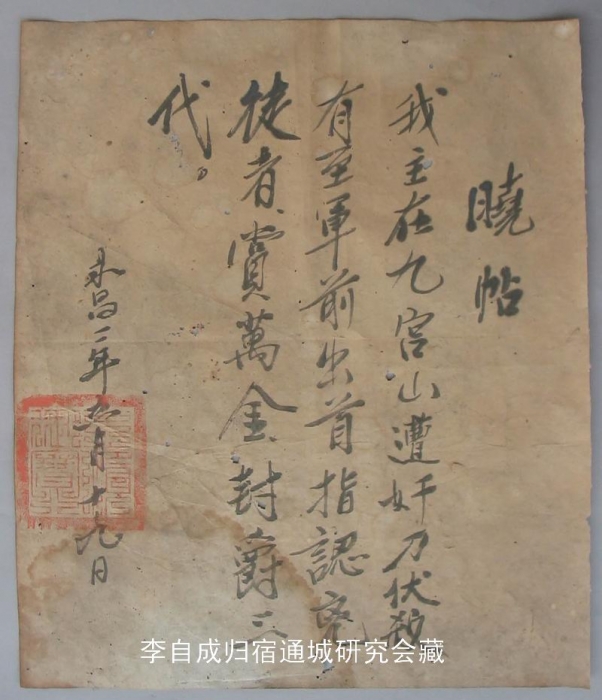 曉帖
我主在九宫山遭奸刀伏殺
有至軍前出首指認兇
徒者賞萬金封爵三
代
永昌二年五月十九日
李自成归宿通城研究会藏